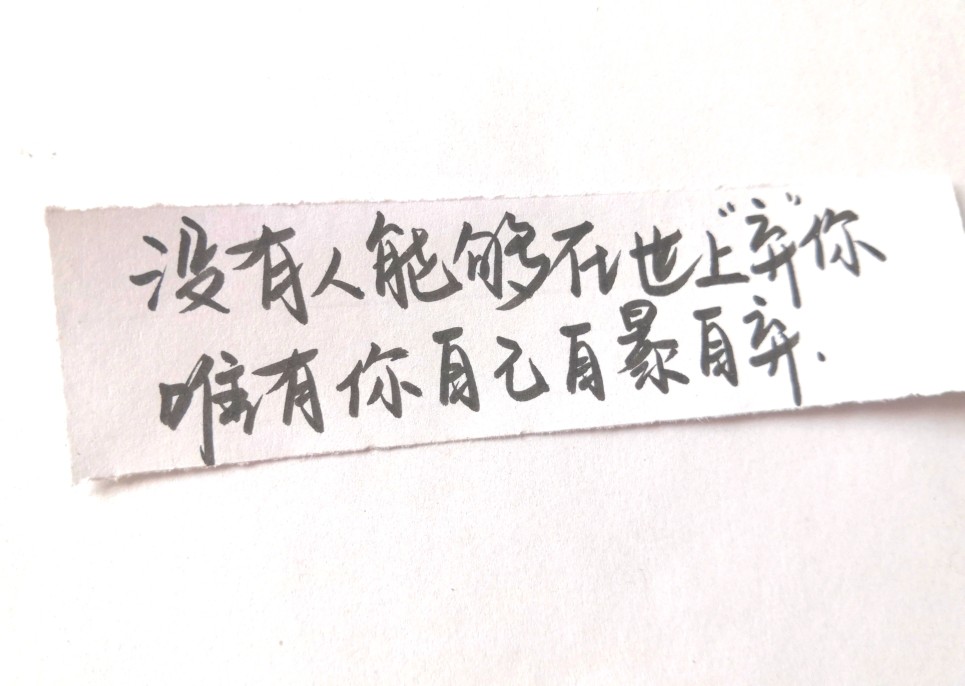 没有人能够在世上“弃”你
唯有你自己自暴自弃.